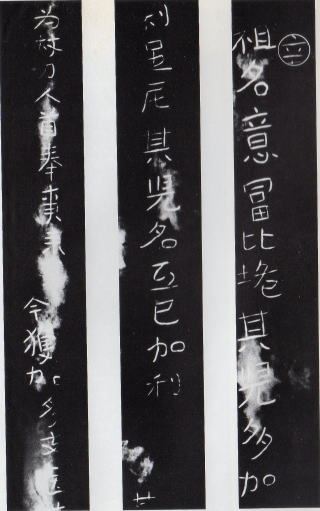 祖名意冨比垝其児多加
利足尼其児名弖已加利
為杖刀人首奉事来至今獲加多支鹵